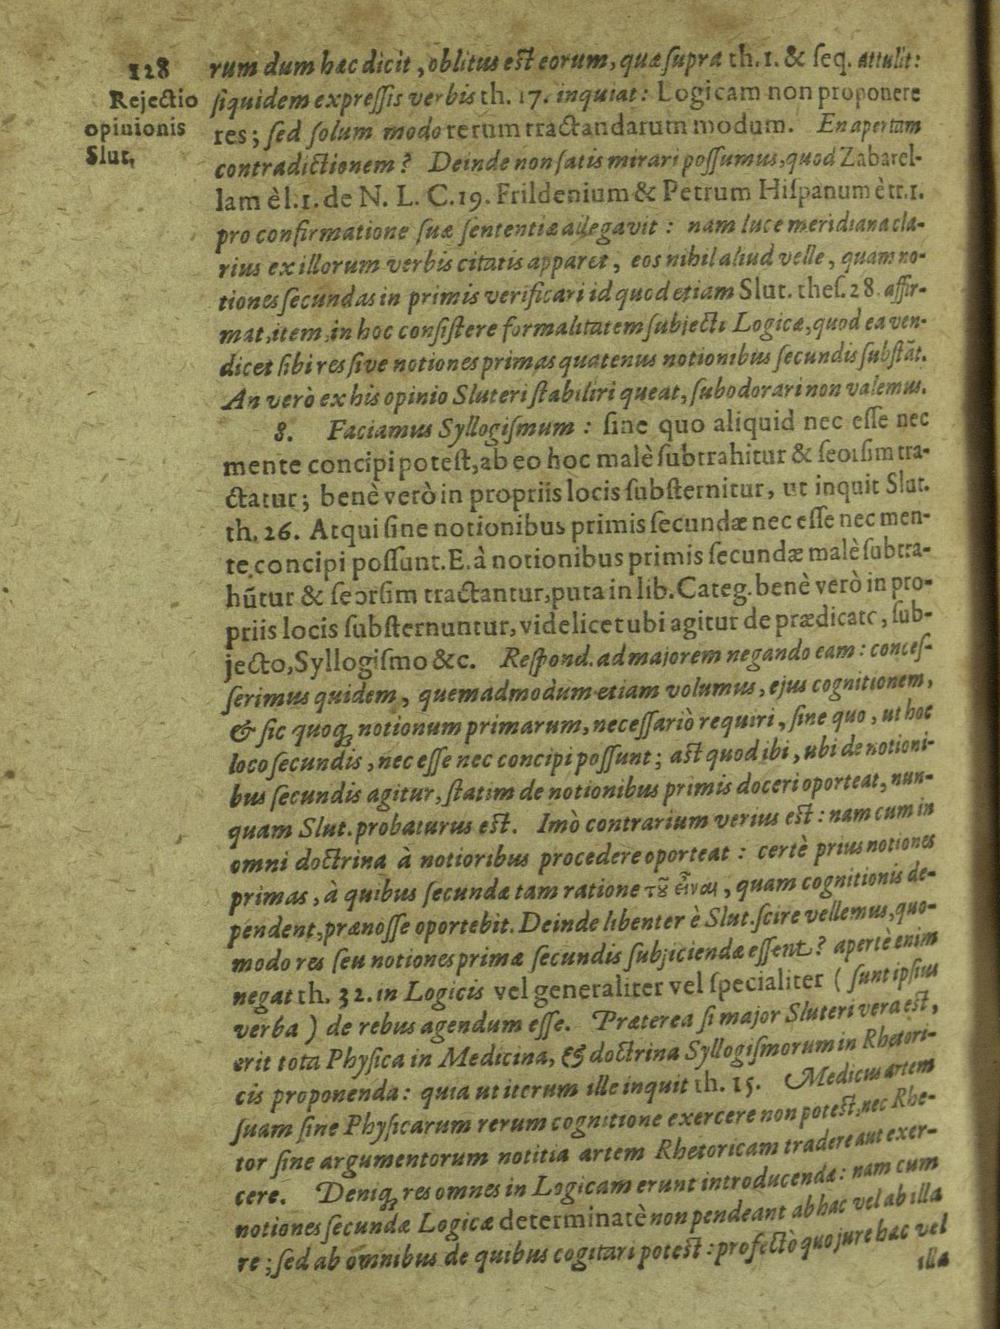 128
Rejectio
opinionis
Slut,
rum dum hæc dicit, oblitus est eorum, quæ supra th. 1. & seq. attulit:
siquidem expressis verbis th. 17. inquiat: Logicam non proponere
res; sed solum modo rerum tractandarum modum. En apertam
contradictionem? Deinde non satis mirari possumus, quod Zabarel-
lam è l. 1. de N. L. C. 19. Frildenium & Petrum Hispanum è tr. 1.
pro confirmatione suæ sententiæ allegavit: nam luce meridiana cla-
rius ex illorum verbis citatis apparet, eos nihil aliud velle, quam no-
tiones secundas in primis verificari id quod etiam Slut. thes. 28. affir-
mat, item in hoc consistere formalitatem subjecti Logicæ, quod ea ven-
dicet sibi res sive notiones primas quatenus notionibus secundis substāt.
An verò ex his opinio Sluteri stabiliri queat, subodorari non valemus.
8. Faciamus Syllogismum: sine quo aliquid nec esse nec
mente concipi potest, ab eo hoc malè subtrahitur & seorsim tra-
ctatur; benè verò in propriis locis substernitur, ut inquit Slut.
th. 26. Atqui sine notionibus primis secundæ nec esse nec men-
te concipi possunt. E. à notionibus primis secundæ malè subtra-
hūtur & seorsim tractantur, puta in lib. Categ. benè verò in pro-
priis locis substernuntur, videlicet ubi agitur de prædicato, sub-
jecto, Syllogismo &c. Respond. ad majorem negando eam: conces-
serimus quidem, quemadmodum etiam volumus, ejus cognitionem,
& sic quoq; notionum primarum, necessariò requiri, sine quo, ut hoc
loco secundis, nec esse nec concipi possunt; ast quod ibi, ubi de notioni-
bus secundis agitur, statim de notionibus primis doceri oporteat, nun-
quam Slut. probaturus est. Imò contrarium verius est: nam cum in
omni doctrina à notioribus procedere oporteat: certè prius notiones
primas, à quibus secundæ tam ratione τȣ̃ εἶναι, quam cognitionis de-
pendent, prænosse oportebit. Deinde libenter è Slut. scire vellemus, quo-
modo res seu notiones primæ secundis subjiciendæ essent? apertè enim
negat th. 32. in Logicis vel generaliter vel specialiter (sunt ipsius
verba) de rebus agendum esse. Præterea si major Sluteri vera est,
erit tota Physica in Medicina, & doctrina Syllogismorum in Rhetori-
cis proponenda: quia ut iterum ille inquit th. 15. Medicus artem
suam sine Physicarum rerum cognitione exercere non potest, nec Rhe-
tor sine argumentorum notitia artem Rhetoricam tradere aut exer-
cere. Deniq; res omnes in Logicam erunt introducendæ: nam cum
notiones secundæ Logicæ determinatè non pendeant ab hac vel ab illa
re; sed ab omnibus de quibus cogitari potest: profectò quo jure hæc vel
illa